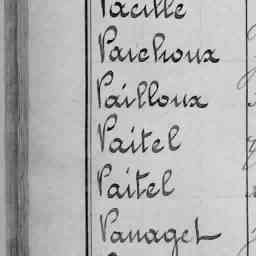 Vacille
Vaichoux
Vailloux
Vaitel
Vaitel
Vanaget